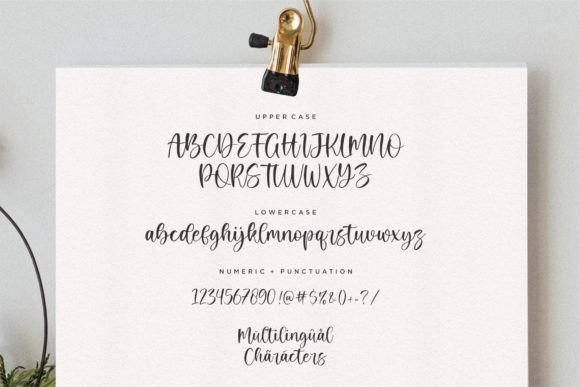 UPPER CASE
ABCDEFGHIJKLMNO
PQRSTUVWXYZ
LOWERCASE
abcdefghijklmnopqrstuvwxyz
NUMERIC + PUNCTUATION
1234567890!@#$%&()+=?/
Mùltilingûàl
Chärácters